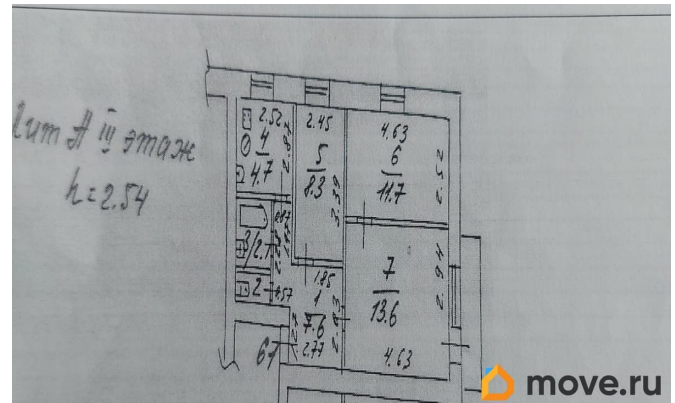 Лит А III этаж
h=2.54
2.52
4
4.7
2.45
5
8.3
3.39
4.63
6
11.7
2.52
3/2.1
2
1.85
1
7.6
2.77
7
13.6
2.94
4.63
61
move.ru